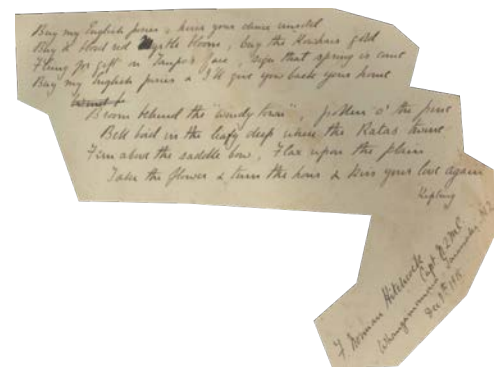 Buy my English posies & hear your choice unsold
Buy a blood red Myrtle bloom, buy the Kowhais gold
Flung for gift on Taupo's face, sign that spring is come
Buy my English posies & I'll give you back your home
Broom behind the "windy town", pollen o' the pine
Bell bird in the leafy deep where the Ratas twine
Fern above the saddle bow, Flax upon the plain
Take the flower & turn the hour & kiss your love again
Kipling
F Norman Hitchcock
Capt NZMC
Whangamomona, Taranaki, NZ
Dec 9th 1915